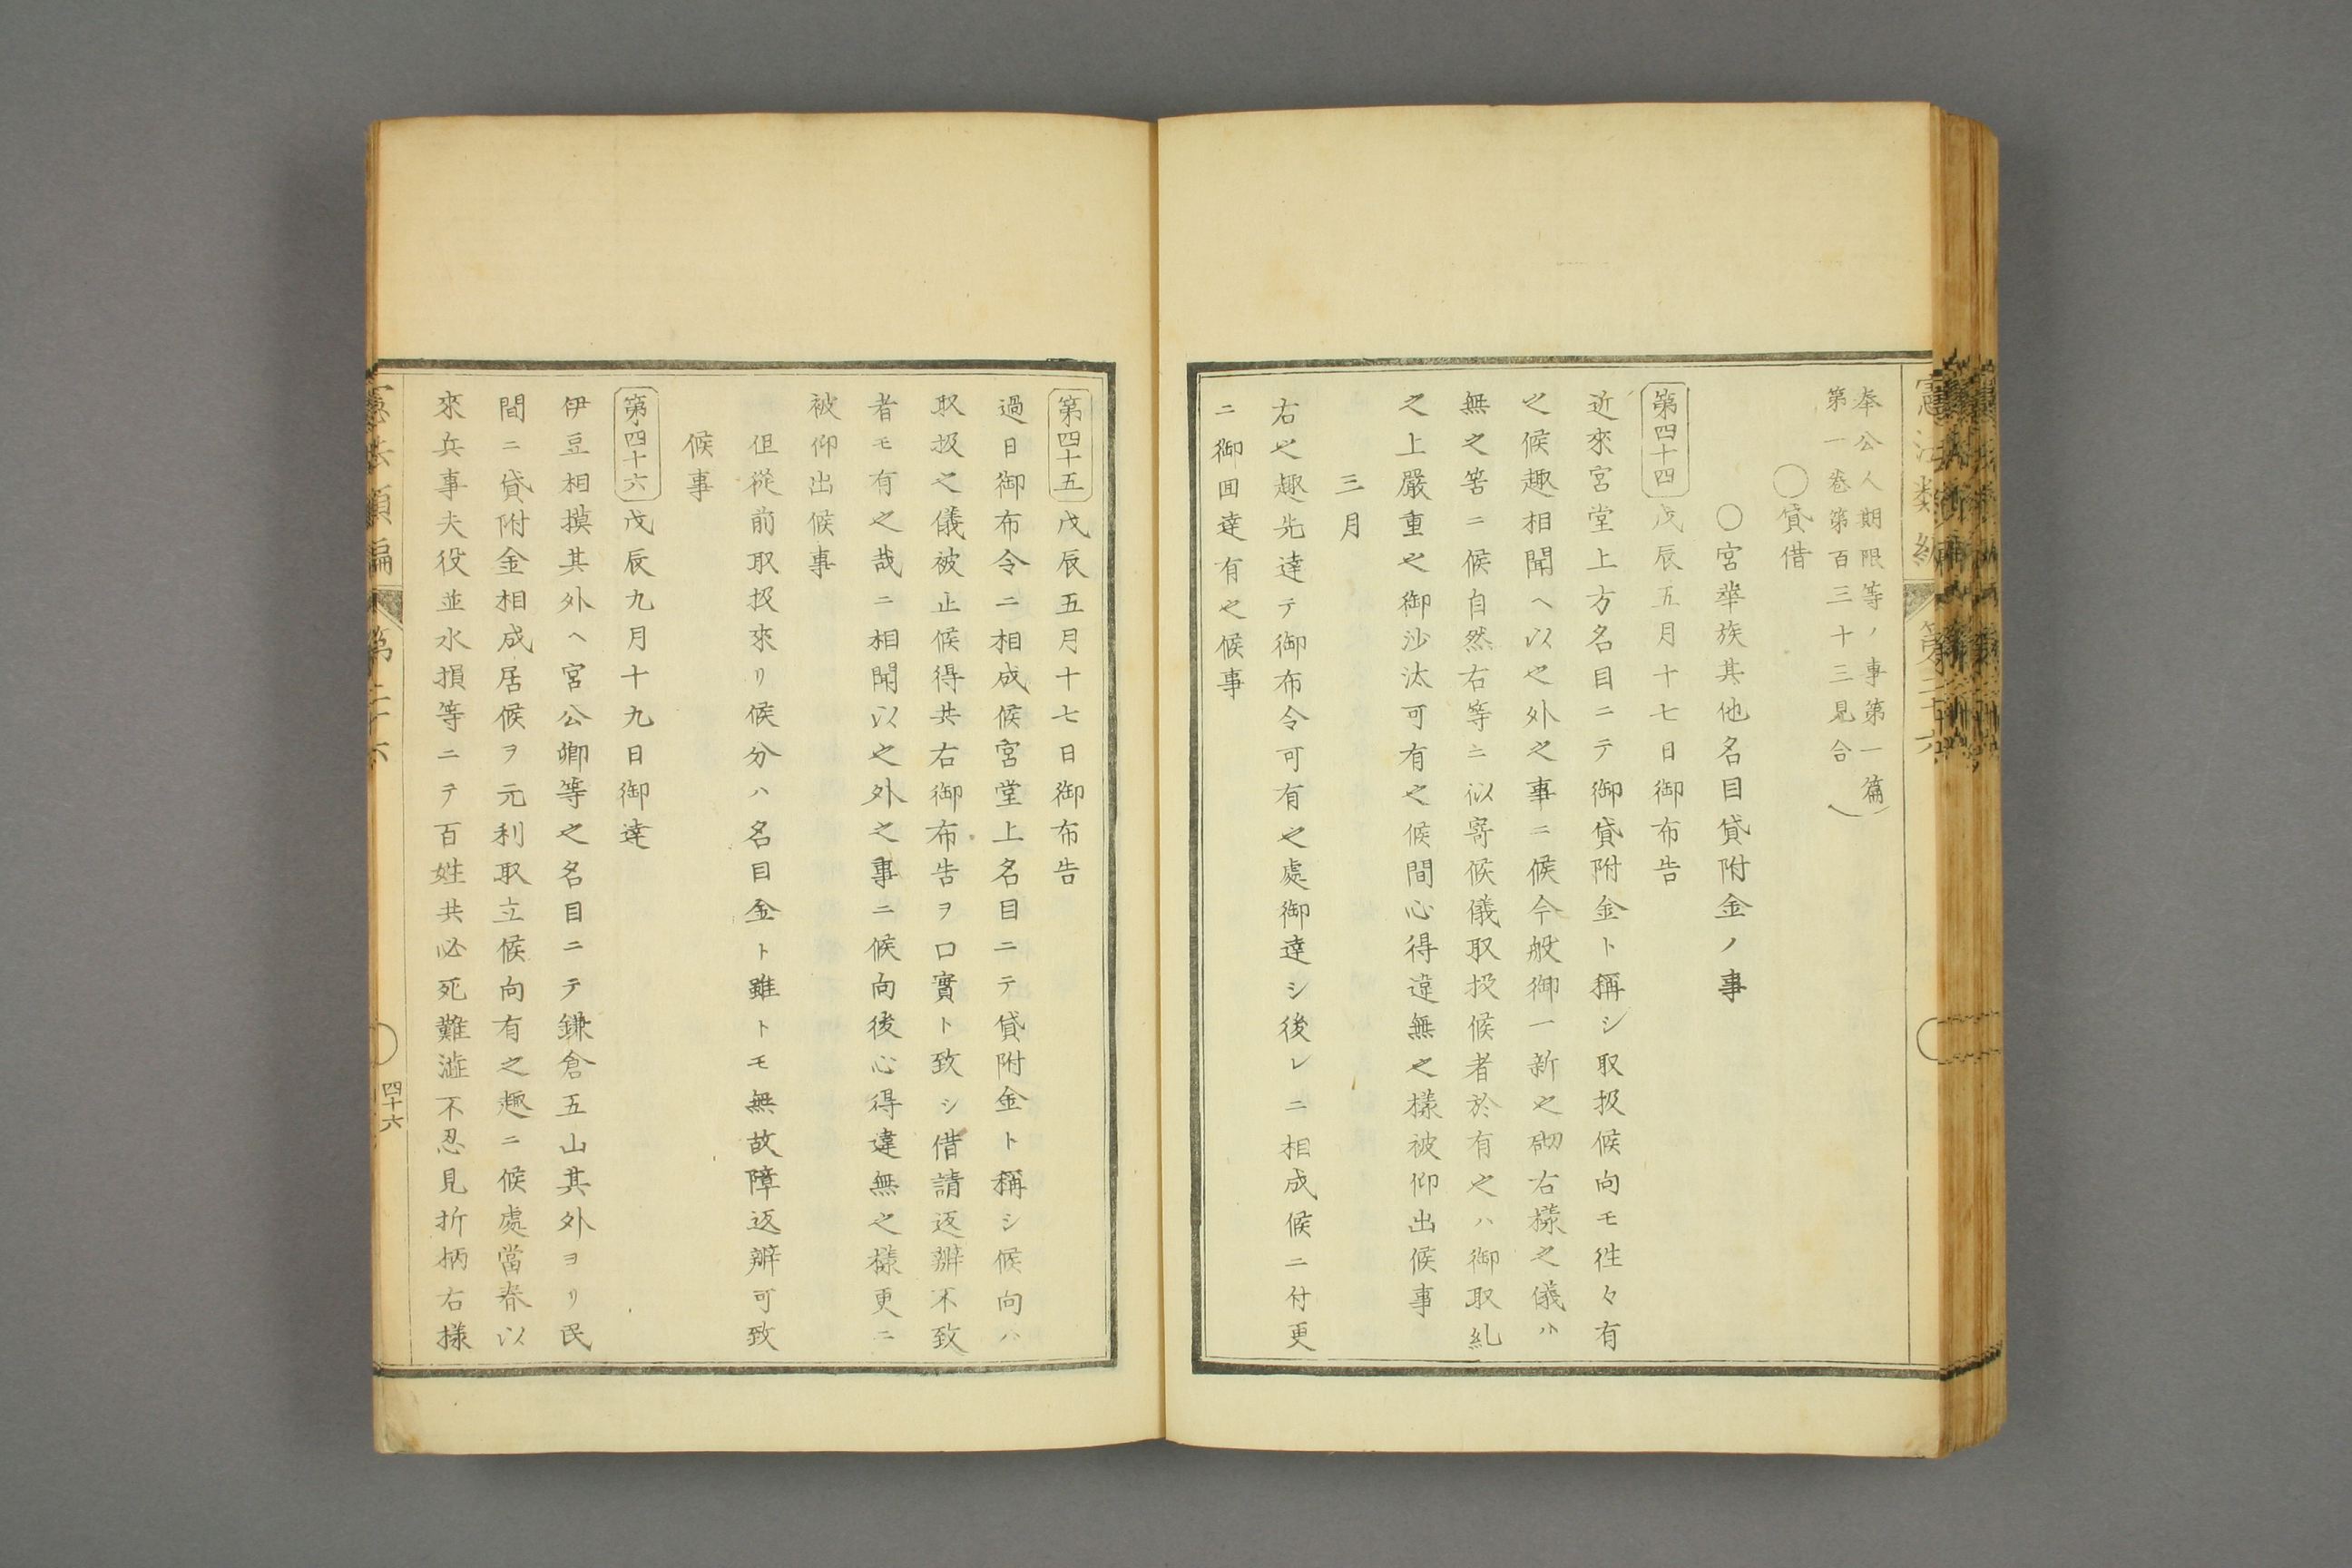 奉公人期限等ノ事第一篇
第一巻第百三十三見合)
○貸借
○宮華族其他名目貸附金ノ事
第四十四戊辰五月十七日御布告
近來宮堂上方名目ニテ御貸附金ト稱シ取扱候向モ徃々有
之候趣相聞ヘ以之外之事ニ候今般御一新之砌右樣之儀ハ
無之筈ニ候自然右等ニ似寄候儀取扱候者於有之ハ御取糺
之上嚴重之御沙汰可有之候間心得違無之樣被仰出候事
三月
右之趣先達テ御布令可有之處御達シ後レニ相成候ニ付更
ニ御囬達有之候事
第四十五戊辰五月十七日御布告
過日御布令ニ相成候宮堂上名目ニテ貸附金ト稱シ候向ハ
取扱之儀被止候得共右御布告ヲ口實ト致シ借請返辨不致
者モ有之哉ニ相聞以之外之事ニ候向後心得違無之樣更ニ
被仰出候事
但從前取扱來リ候分ハ名目金ト雖トモ無故障返辨可致
候事
第四十六戊辰九月十九日御達
伊豆相摸其外ヘ宮公卿等之名目ニテ鎌倉五山其外ヨリ民
間ニ貸附金相成居候ヲ元利取立候向有之趣ニ候處當春以
來兵事夫役並水損等ニテ百姓共必死難澁不忍見折柄右樣
憲法類編 第二十六
四十六